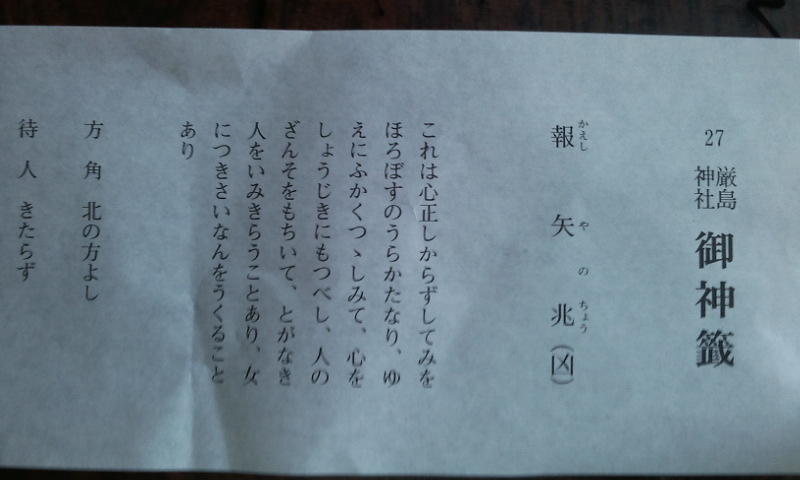 27 厳島神社 御神籤
報矢兆（凶）
かえしやのちょう
これは心正しからずしてみを
ほろぼすのうらかたなり、ゆ
えにふかくつゝしみて、心を
しょうじきにもつべし、人の
ざんそをもちいて、とがなき
人をいみきらうことあり、女
につきさいなんをうくること
あり
方角 北の方よし
待人 きたらず